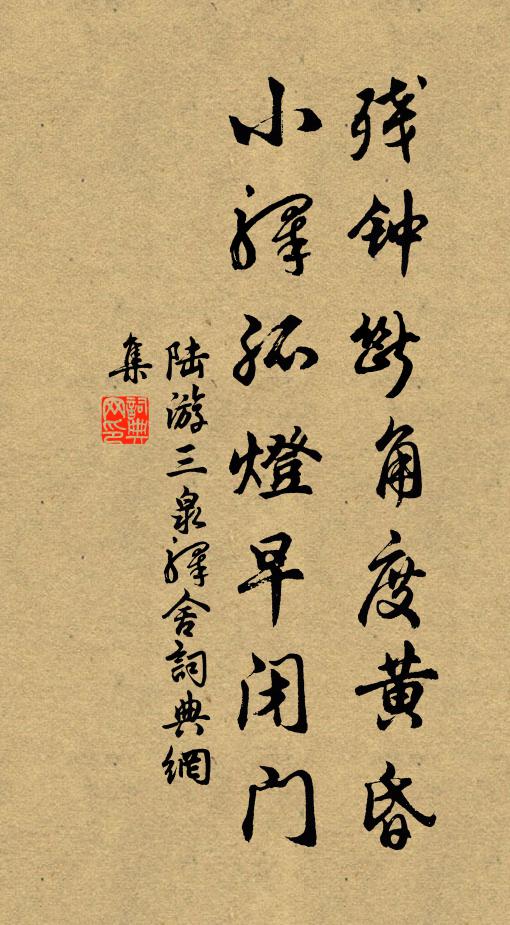 残钟断角度黄昏
小驿孤燈早闭门
陆游三泉驿舍詞典網
集
詞典网印